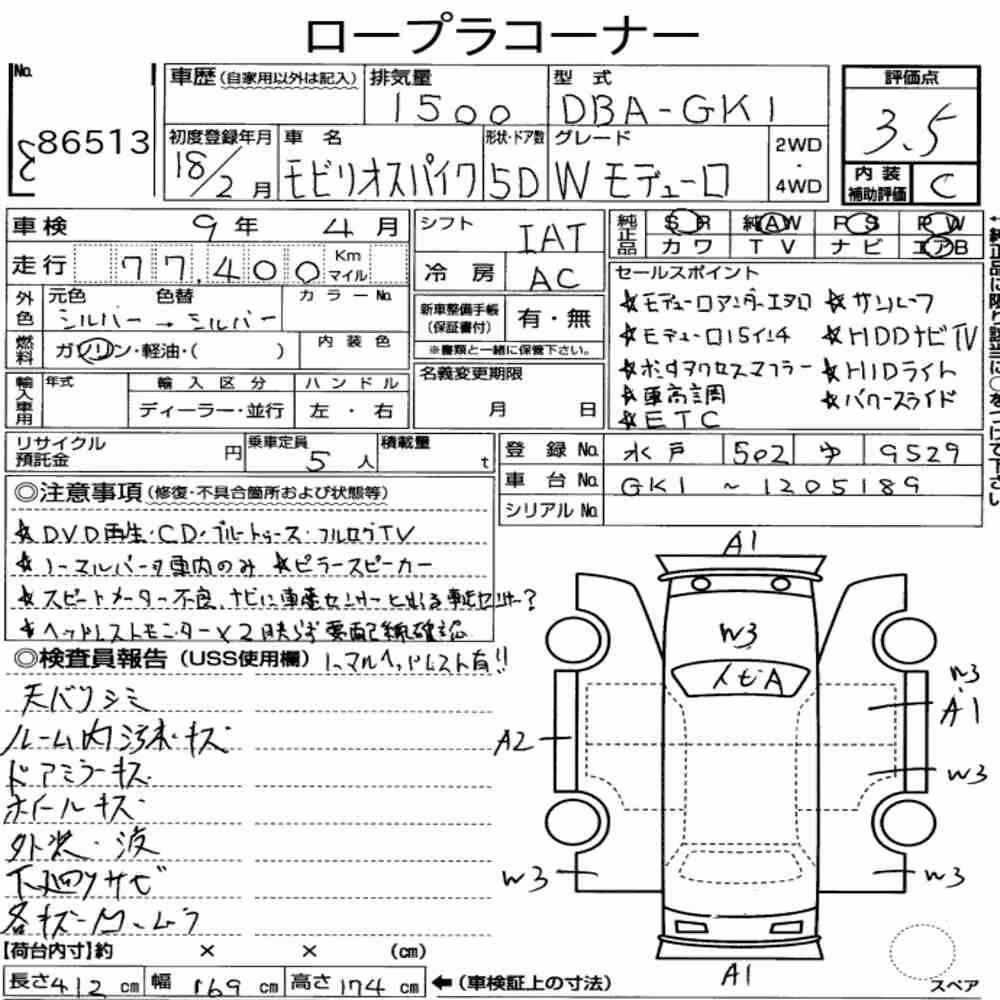 ロープラコーナー
No. 86513
車歴(自家用以外は記入)
排気量 1500
型式 DBA-GK1
評価点 3.5
初度登録年月 18/2月
車名 モビリオスパイク
形状・ドア数 5D
グレード W モデューロ
2WD・4WD
内装補助評価 C
車検 9年 4月
シフト IAT
純正品 SR 純AW PS PW
カワ TV ナビ エアB
走行 77,400 Km マイル
冷房 AC
セールスポイント
☆モデューロアンダーエアロ ☆サンルーフ
☆モデューロ15インチ ☆HDDナビTV
☆ホンダアクセスマフラー ☆HIDライト
☆車高調 ☆パワースライド
☆ETC
外色 元色 色替 カラーNo.
シルバー → シルバー
新車整備手帳(保証書付) 有・無
※書類と一緒に保管下さい。
燃料 ガソリン・軽油・( ) 内装色
名義変更期限 月 日
輸入車用 年式 輸入区分 ハンドル
ディーラー・並行 左・右
リサイクル預託金 円
乗車定員 5人
積載量 t
登録No. 水戸 502 ゆ 9529
車台No. GK1 ~ 1205189
シリアルNo.
◎注意事項(修復・不具合箇所および状態等)
☆DVD再生・CD・ブルートゥース・フルセグTV
☆ノーマルバネ車内のみ ☆ピラースピーカー
☆スピードメーター不良、ナビに車速センサーと出る 車速センサー?
☆ヘッドレストモニター×2映らず 要配線確認
◎検査員報告(USS使用欄) ノーマルヘッドレスト有!!
天バリシミ
ルーム内汚れ・キズ
ドアミラーキズ
ホイールキズ
下廻りサビ
A1
W3
トビA
W3
A1
A2
W3
W3
W3
A1
【荷台内寸】約 × × (cm)
長さ412cm 幅169cm 高さ174cm ←(車検証上の寸法)
スペア